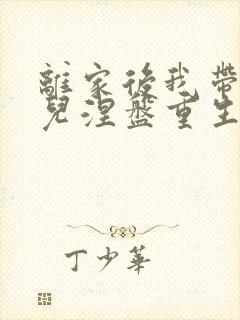 離家後我帶
兒涅盤重生
丁少華